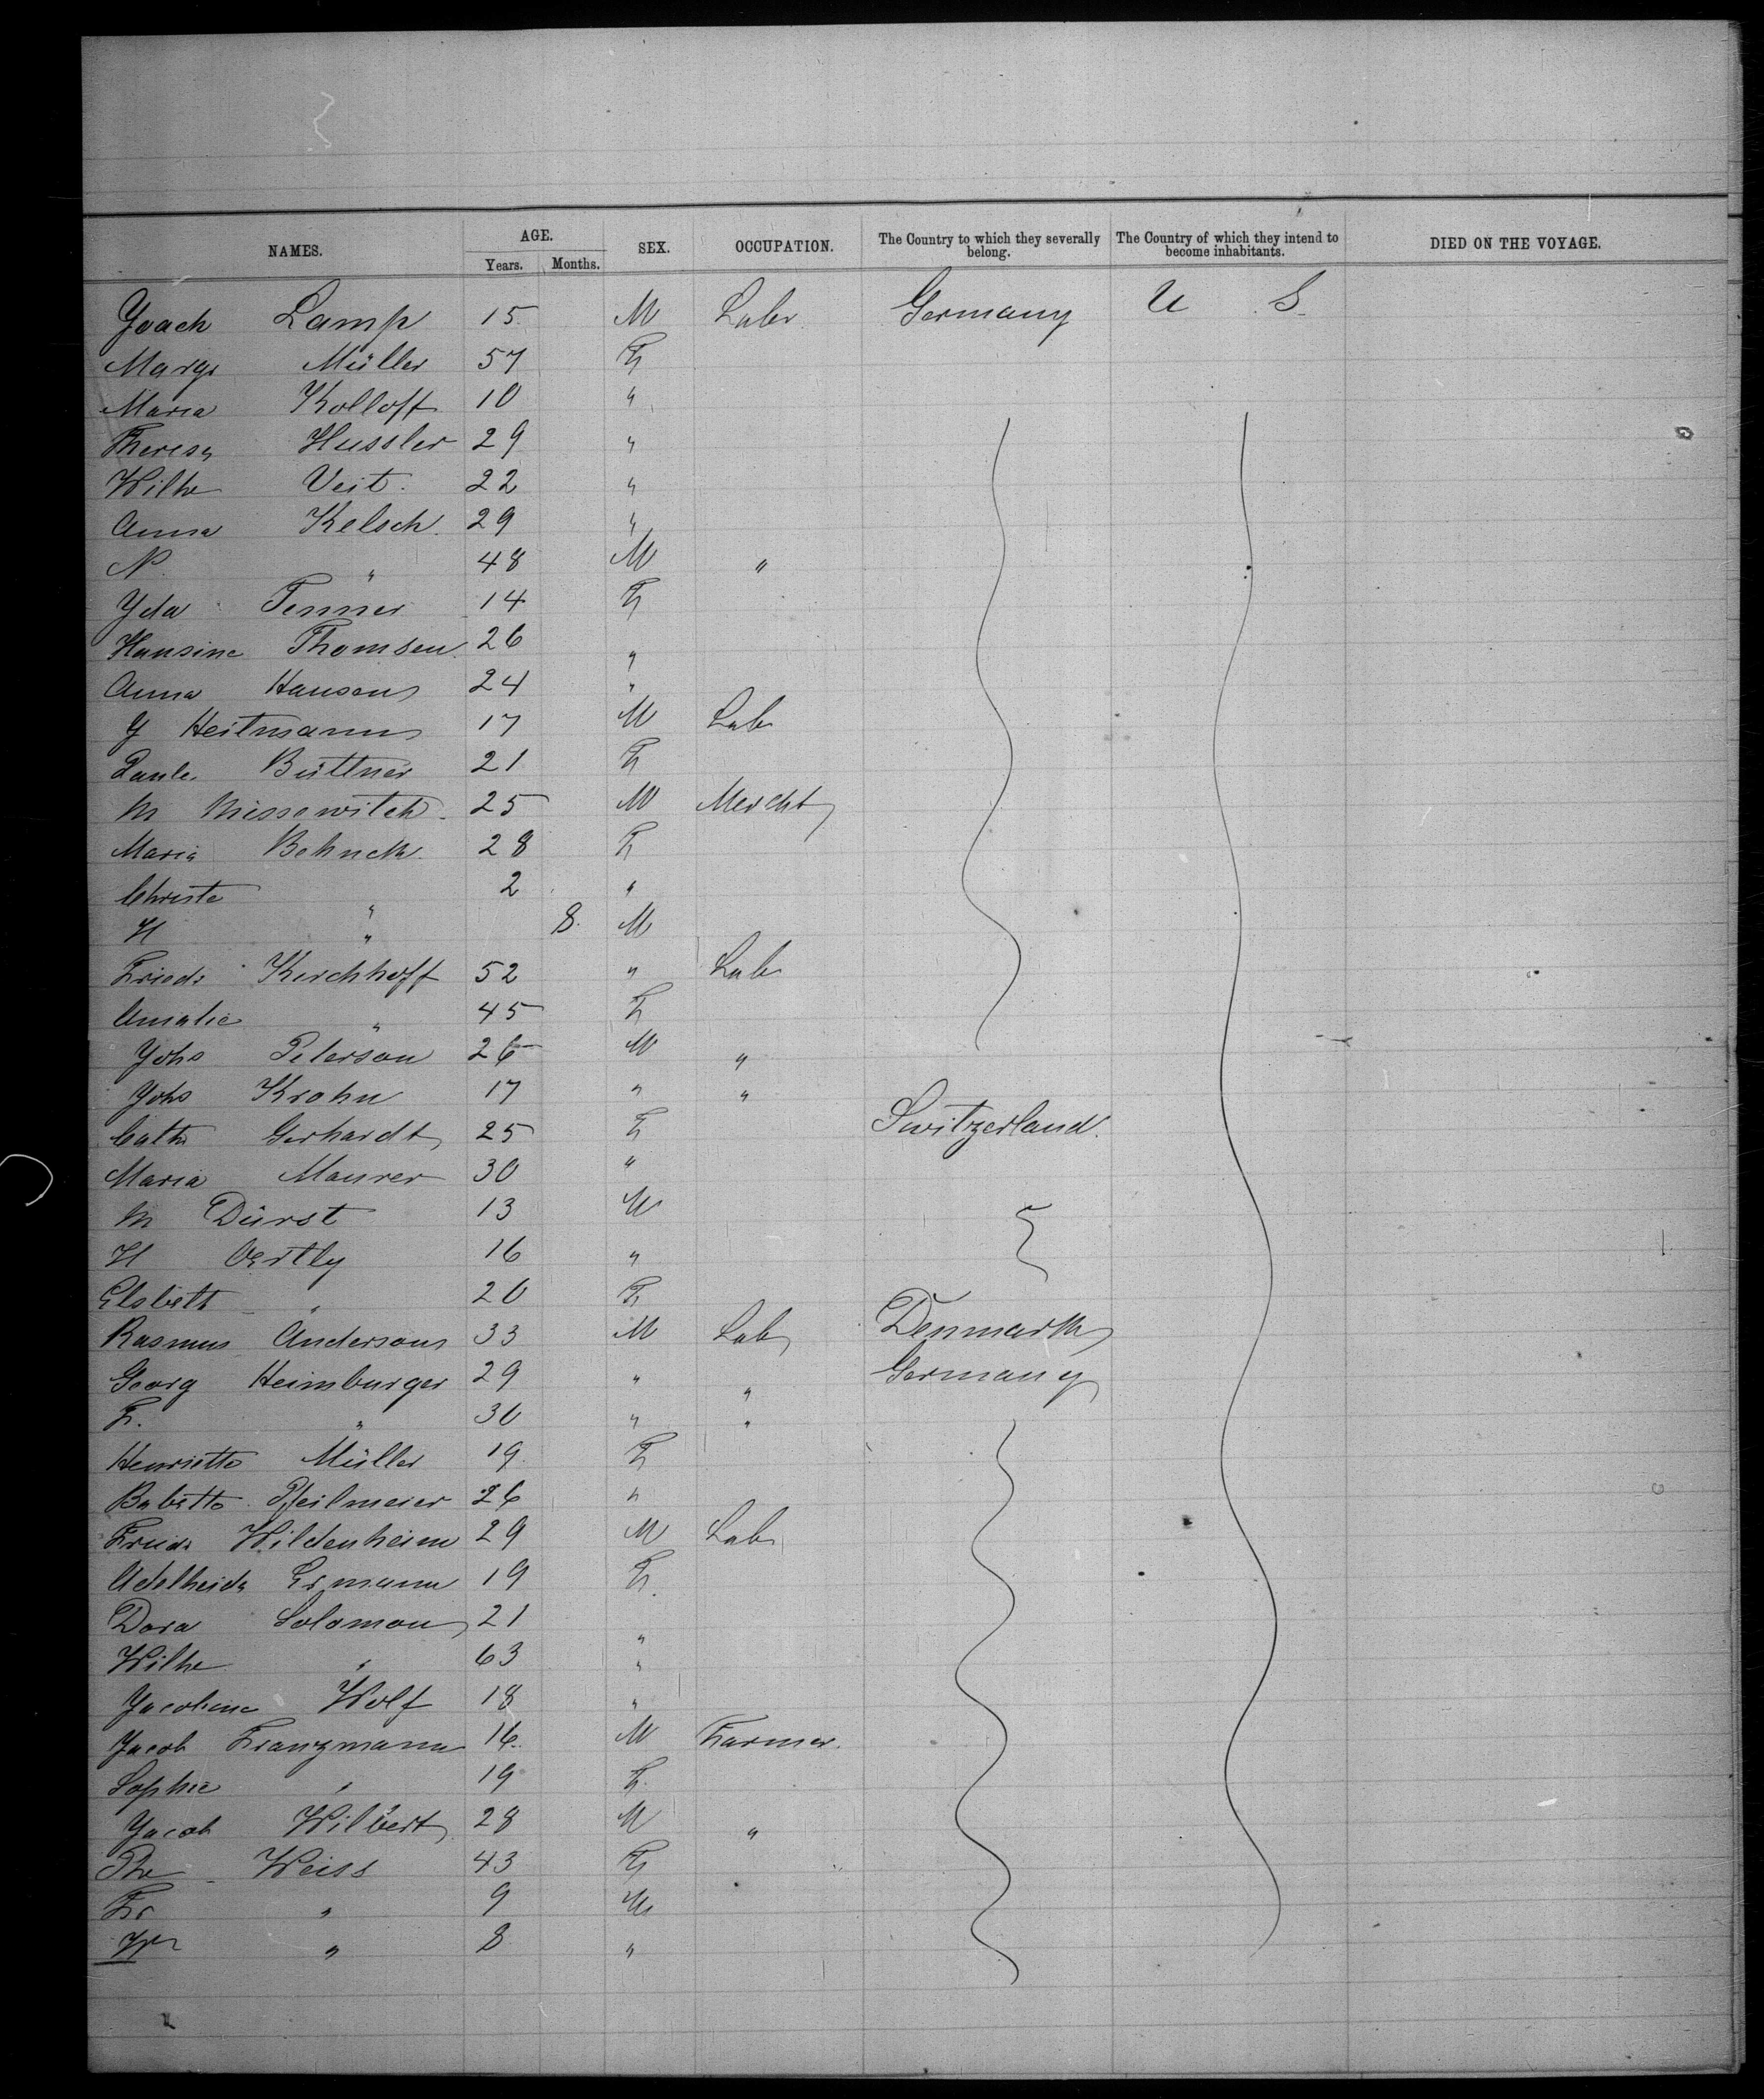 NAMES. AGE. SEX. OCCUPATION. The Country to which they severally belong. The Country of which they intend to become inhabitants. DIED ON THE VOYAGE.
Years. Months.
Joach Lamp 15 M Labr. Germany U S
Margr Müller 57 F
Maria Kolloff 10 "
Theresa Hussler 29 "
Wilhe Veit. 22 "
Anna Kelsch 29 "
N. " 48 M "
Ida Tenner 14 F
Hansine Thomsen 26 "
Anna Hansen 24 "
J Heitmann 17 M Lab
Paule Büttner 21 F
M Missewitch 25 M Mercht
Maria Behnck 28 F
Christe " 2 "
H " 8. M
Friedr Kirchhoff 52 " Lab
Amalie " 45 F
Johs Peterson 26 M "
Johs Krohn 17 " "
Cath Gerhardt 25 F Switzerland.
Maria Maurer 30 "
M Dürst 13 M
H Oertly 16 "
Elsbeth " 20 F
Rasmus Anderson 33 M Lab Denmark
Georg Heimburger 29 " " Germany
F. " 30 " "
Henriette Müller 19 F
Babette Pfeilmeier 26 "
Friedr Wildenheim 29 M Lab
Adelheide Ermann 19 F.
Dora Solomon 21 "
Wilhe " 63 "
Jacobine Wolf 18 "
Jacob Franzmann 16 M Farmer.
Sophie " 19 F.
Jacob Wilbert 28 M "
Phe Weiss 43 F
Fr " 9 M
Wm " 8 "